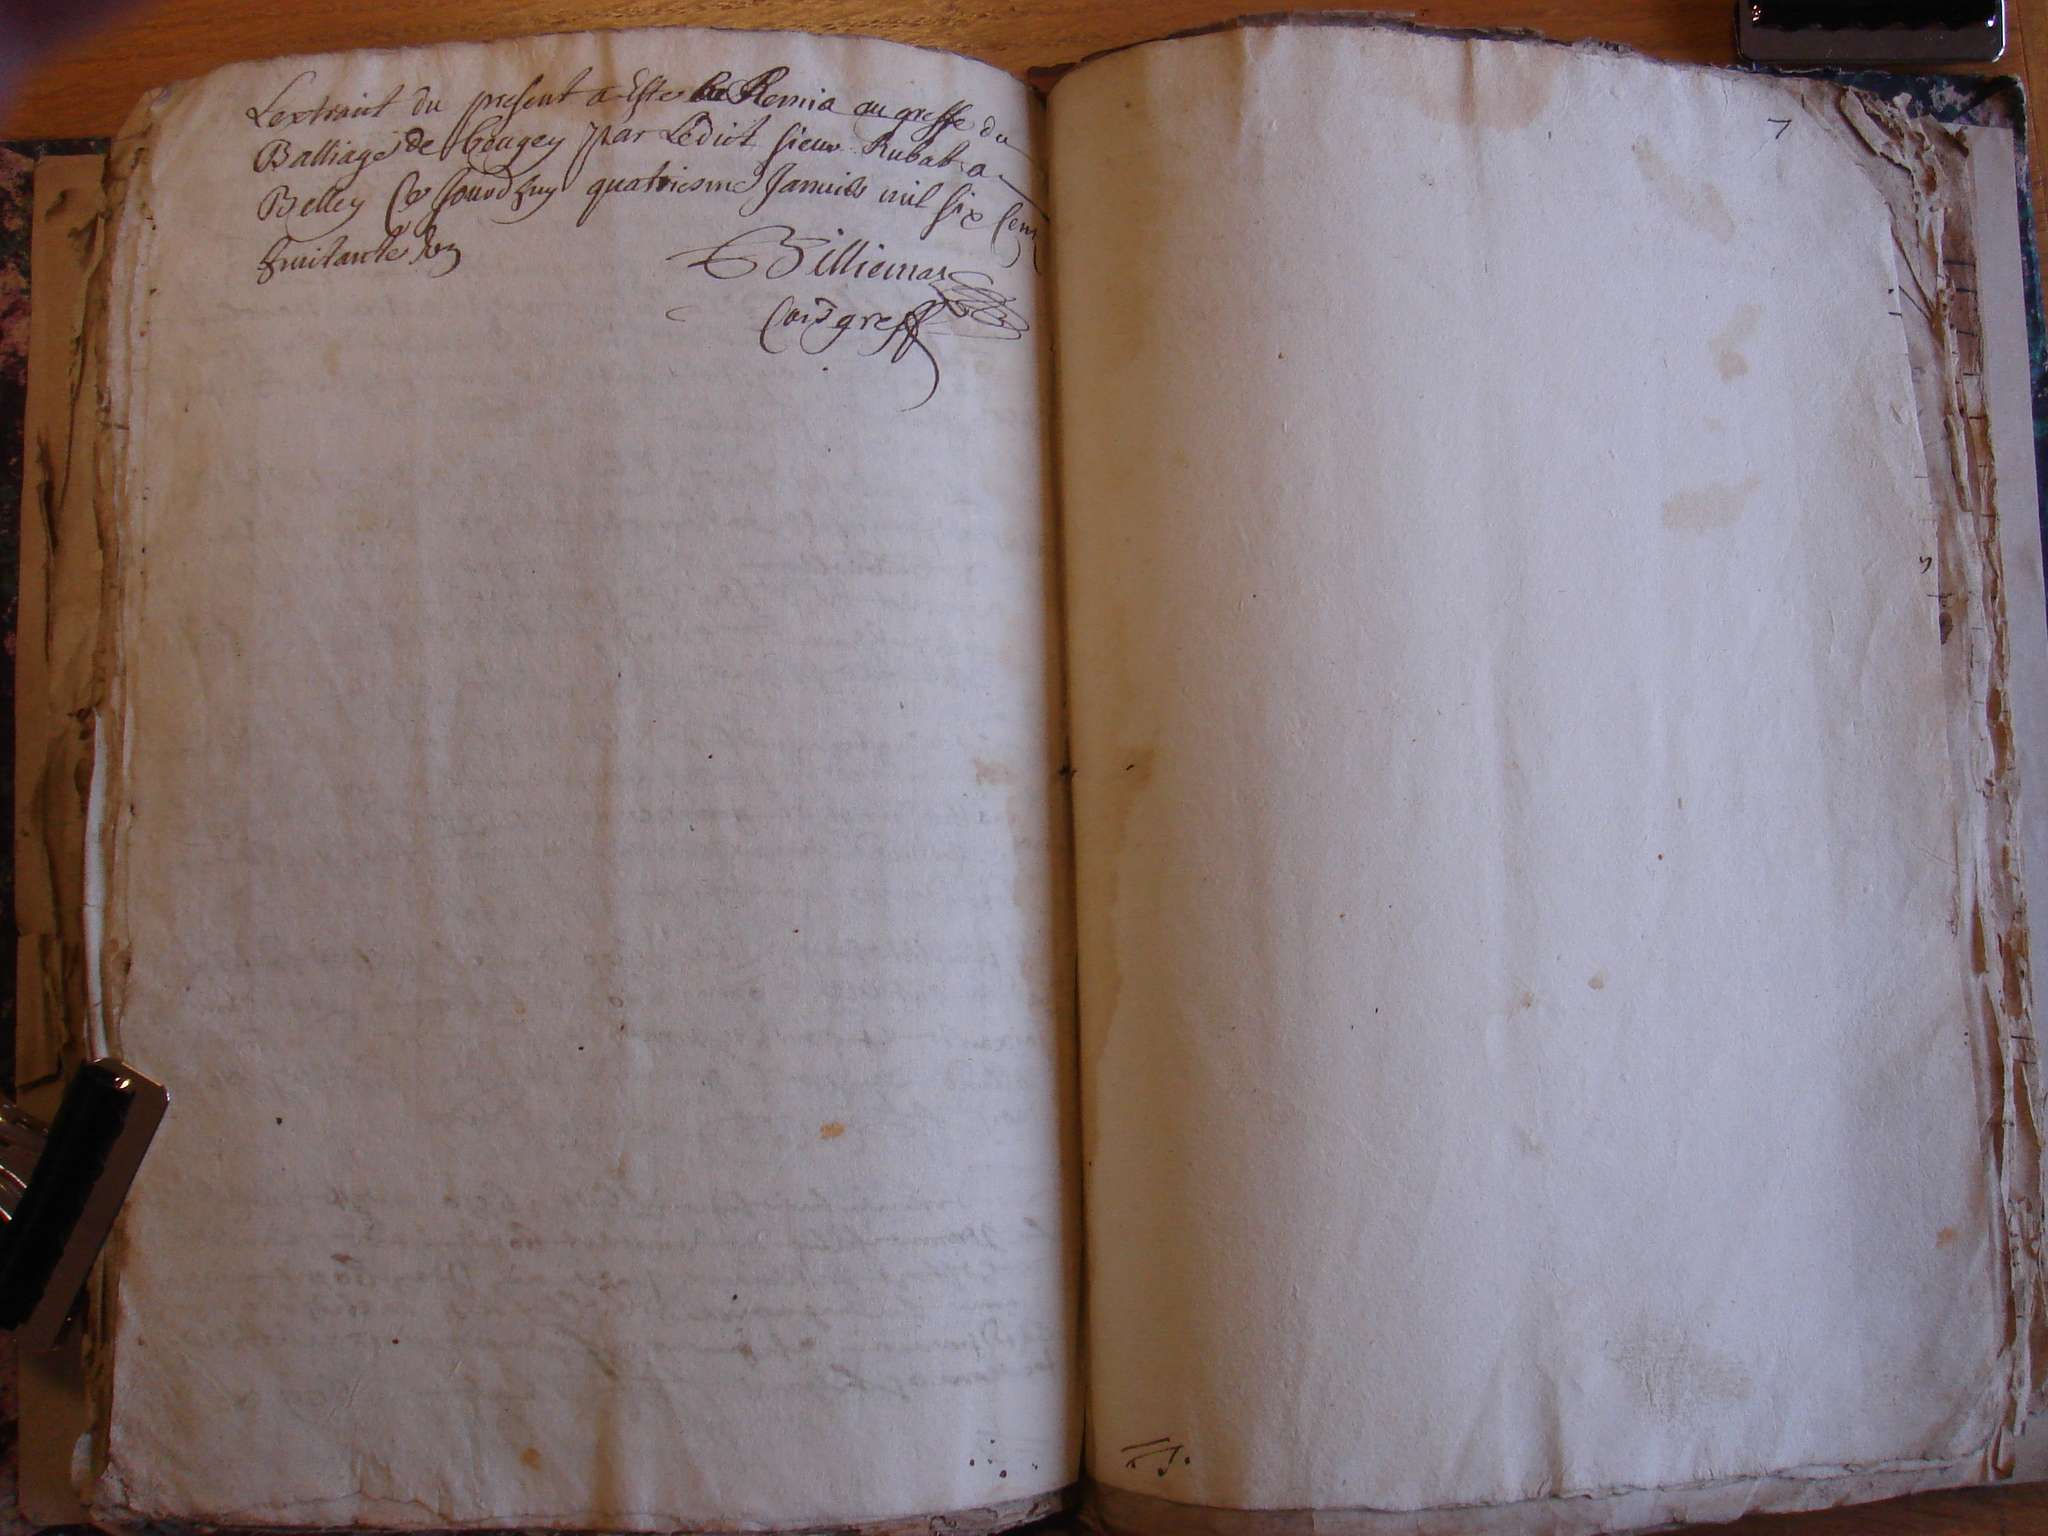 Lextraict du present a Este Remis au greffe du
Balliage de beugey par Ledict sieur Rubat a
Belley Ce Jourdhuy quatriesme Janvier mil six Cens
huitante
Billiemas
Com greff
7